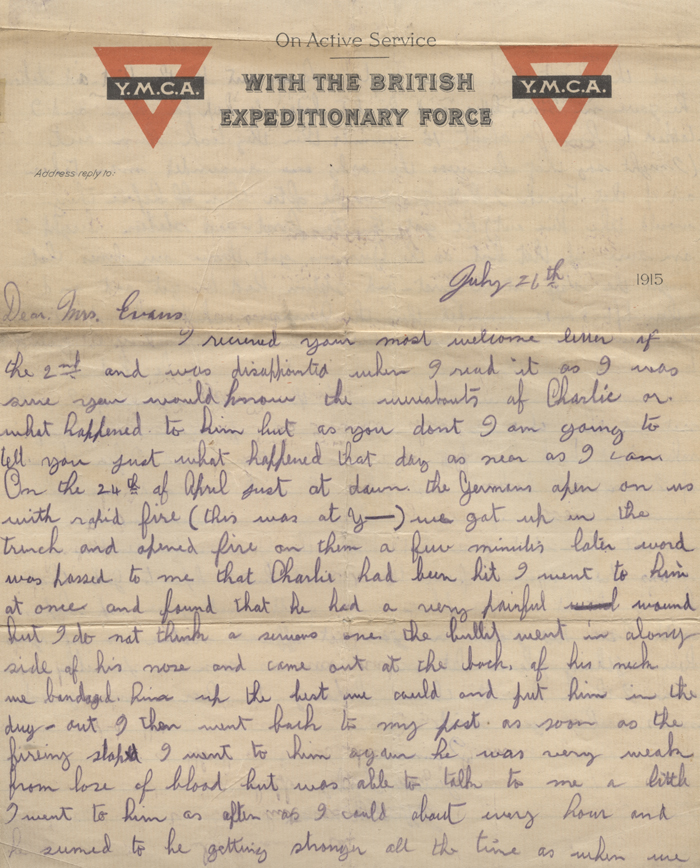 On Active Service
Y.M.C.A. WITH THE BRITISH Y.M.C.A.
EXPEDITIONARY FORCE
Address reply to:
July 26th 1915
Dear. Mrs. Evans
I recieved your most welcome letter of
the 2nd and was disappointed when I read it as I was
sure you would know the wereabouts of Charlie or
what happened to him but as you dont I am going to
tell you just what happened that day as near as I can
On the 24th of April just at dawn. the Germans open on us
with rapid fire (this was at Y—) we got up in the
trench and opened fire on them a few minutes later word
was passed to me that Charlie had been hit I went to him
at once and found that he had a very painful wound
but I do not think a serious one. the bullet went in along
side of his nose and came out at the back. of his neck
we bandaged. him up the best we could and put him in the
dug-out I then went back to my post. as soon as the
fireing stopted I went to him again he was very weak
from lose of blood but was able to talk to me a little
I went to him as often as I could about every hour and
he seemed to be getting stronger all the time as when we